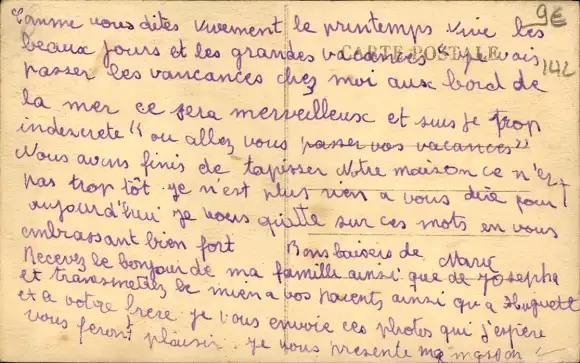 Comme vous dites vivement le printemps vive les 9€
beaux jours et les grandes vacances" je vais 142
CARTE POSTALE
passer les vancances chez moi aux bord de
la mer ce sera merveilleux et suis je trop
indescrete" ou allez vous passer vos vacances"
Nous avons finis de tapisser Notre maison ce n'est
pas trop tôt. je n'est plus rien a vous dire pour
aujourd'hui je vous quitte sur ces mots en vous
embrassant bien fort Bons baisers de Marie
Recevez le bonjour de ma famille ainsi que de Josepha
et transmetez le mien a vos parents ainsi qu a Huguette
et a votre frere je vous envoie ces photos qui j'espère
vous feront plaisir. je vous presente ma maison